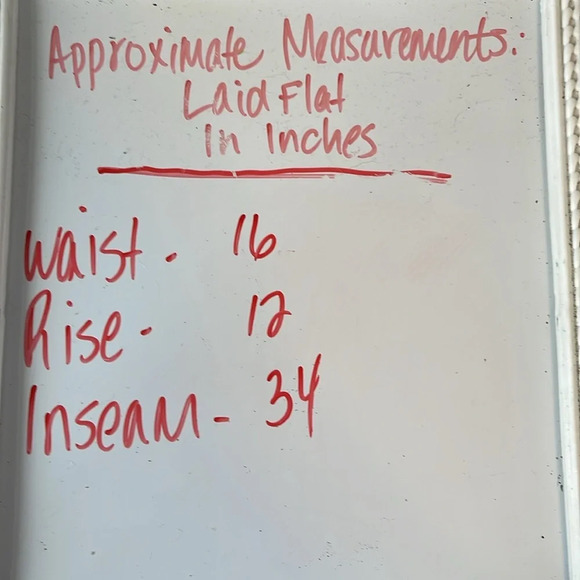 Approximate Measurements:
Laid Flat
In Inches
Waist - 16
Rise - 12
Inseam - 34